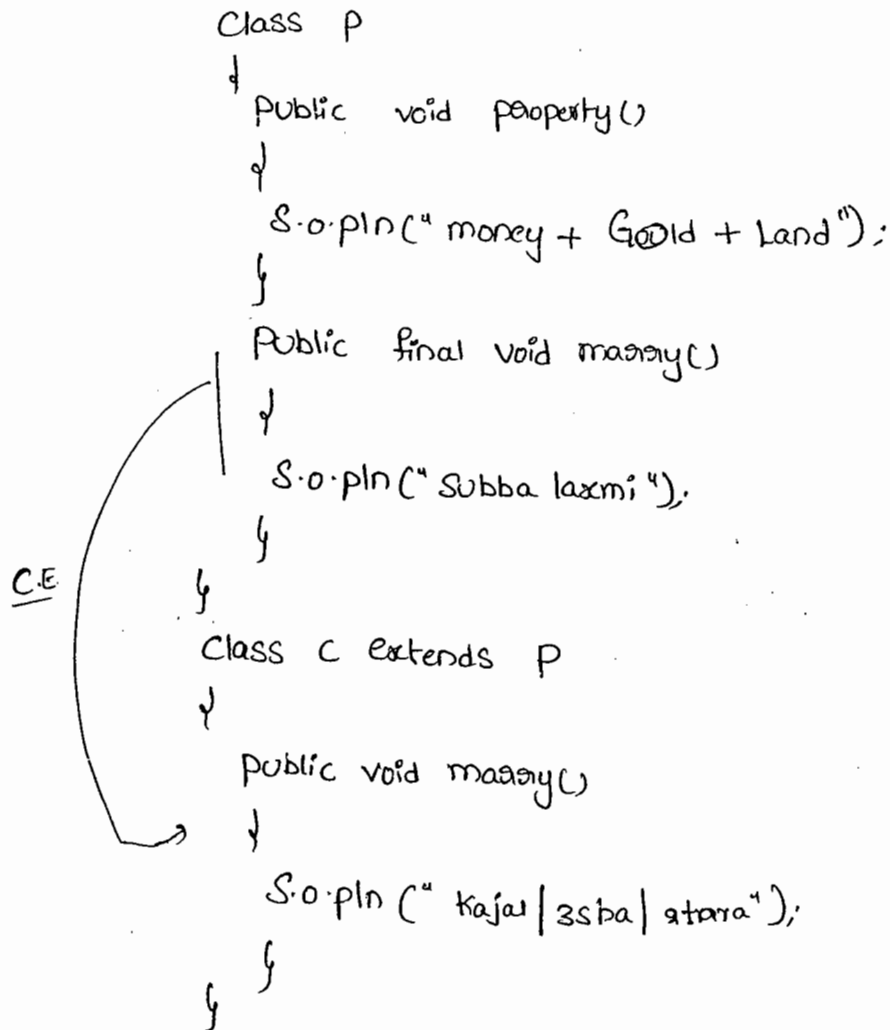 Class P
{
Public void property()
{
S.o.pln("money + Goold + Land");
}
Public final void marry()
{
S.o.pln("Subba laxmi");
}
}
C.E
Class C extends P
{
public void marry()
{
S.o.pln("Kajal | 3sha |
");
}
}